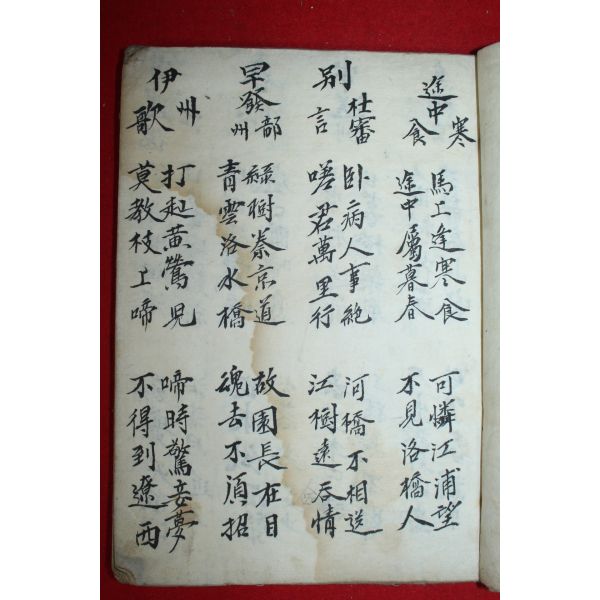 途中寒食
馬上逢寒食
途中屬暮春
可憐江浦望
不見洛橋人
別杜審言
卧病人事絶
嗟君萬里行
河橋不相送
江樹遠含情
早發部州
綠樹秦京道
青雲洛水橋
故園長在目
魂去不須招
伊州歌
打起黃鶯兒
莫教枝上啼
啼時驚妾夢
不得到遼西